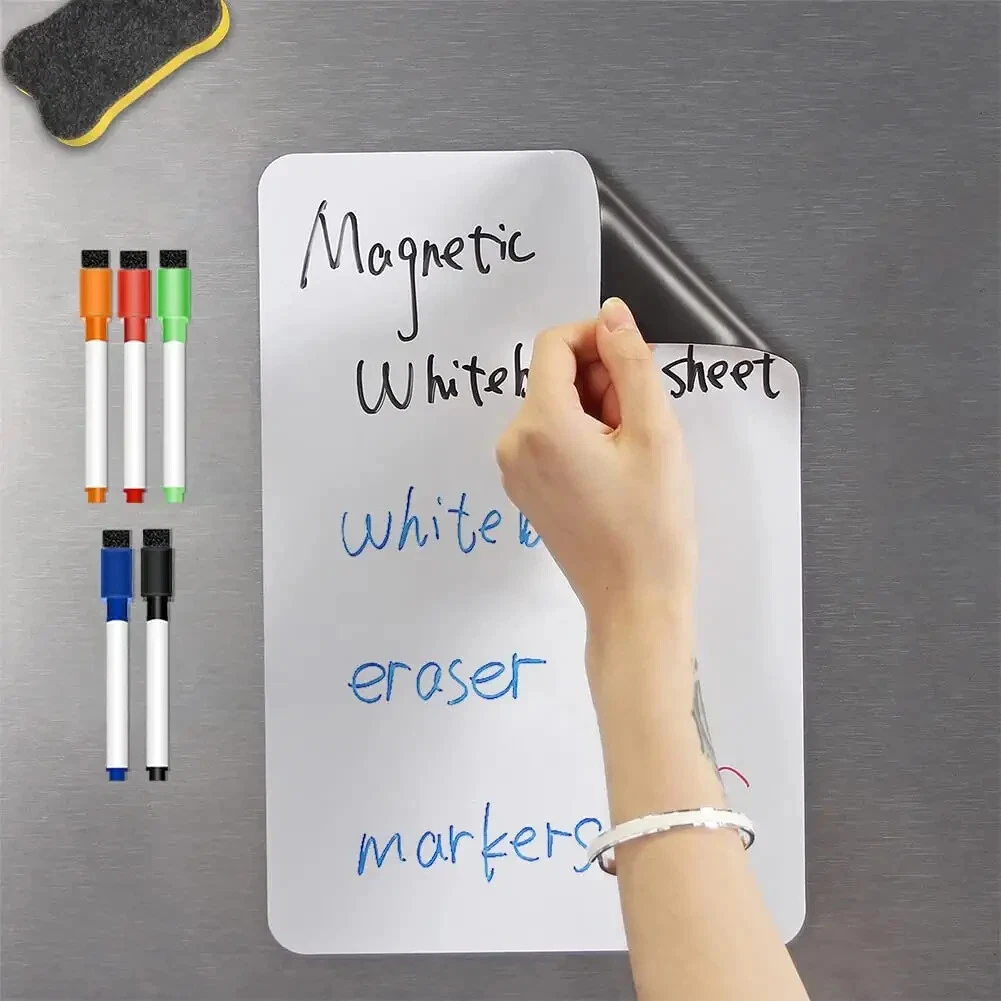 Magnetic
Whiteb sheet
white
eraser
markers